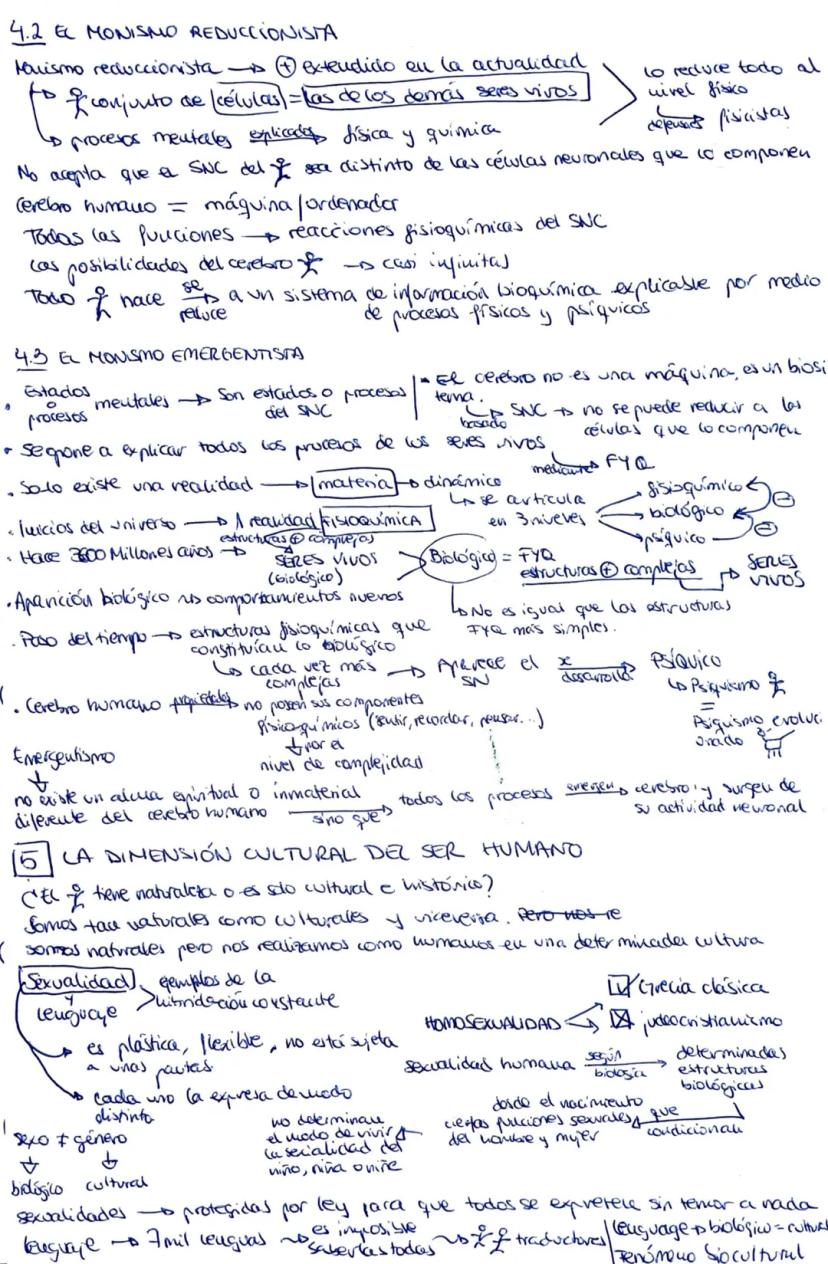 4.2 EL MONISMO REDUCCIONISTA
Monismo reduccionista → ⊕ extendido en la actualidad
↳ conjunto de células = las de los demás seres vivos
↳ procesos mentales explicados física y química
lo reduce todo al
nivel físico
defensores fisicistas
No acepta que el SNC del sea distinto de las células neuronales que lo componen
Cerebro humano = máquina/ordenador
Todas las funciones → reacciones fisioquímicas del SNC
Las posibilidades del cerebro → casi infinitas
Todo hace se reduce → a un sistema de información bioquímica explicable por medio
de procesos físicos y psíquicos
4.3 EL MONISMO EMERGENTISTA
• Estados o procesos mentales → Son estados o procesos
del SNC
• El cerebro no es una máquina, es un biosi
tema.
↳ basado SNC → no se puede reducir a las
células que lo componen
• Se opone a explicar todos los procesos de los seres vivos
mediante → FYQ
. Solo existe una realidad → materia → dinámico
↳ se articula
en 3 niveles
fisioquímico
biológico
psíquico
. Inicios del universo → 1 realidad FISIOQUÍMICA
. Hace 3600 Millones años → estructuras ⊕ complejas
SERES VIVOS
(biológico)
Biológico = FYQ
estructuras ⊕ complejas → SERES
VIVOS
↳ No es igual que las estructuras
FYQ más simples.
. Aparición biológico → comportamientos nuevos
. Paso del tiempo → estructuras fisioquímicas que
constituían lo biológico
↳ cada vez más
complejas → Aparece el
SN x desarrollo → Psíquico
↳ Psiquismo
=
Psiquismo evoluci
onado
. Cerebro humano propiedades no poseen sus componentes
fisicoquímicos (sentir, recordar, pensar...)
↓ por el
nivel de complejidad
Emergentismo
↓
no existe un alma espiritual o inmaterial
diferente del cerebro humano sino que → todos los procesos emergen → cerebro y surgen de
su actividad neuronal
5 LA DIMENSIÓN CULTURAL DEL SER HUMANO
¿El tiene naturaleza o es solo cultural e histórico?
Somos tan naturales como culturales y viceversa. Pero nos re
somos naturales pero nos realizamos como humanos en una determinada cultura
Sexualidad
y
lenguaje
ejemplos de la
hibridación constante
→ es plástica, flexible, no está sujeta
a unas pautas
→ cada uno la expresa de modo
distinto
HOMOSEXUALIDAD
Grecia clásica
judeocristianismo
sexualidad humana según biología → determinadas
estructuras
biológicas
que condicionan
desde el nacimiento
ciertas funciones sexuales
del hombre y mujer
no determinan
el modo de vivir
la sexualidad del
niño, niña o niñe
sexo ≠ género
↓ ↓
biológico cultural
sexualidades → protegidas por ley para que todos se expresen sin temor a nada
lenguaje → 7 mil lenguas → es imposible
saberlas todas → traductores
lenguage → biológico = cultural
Fenómeno biocultural